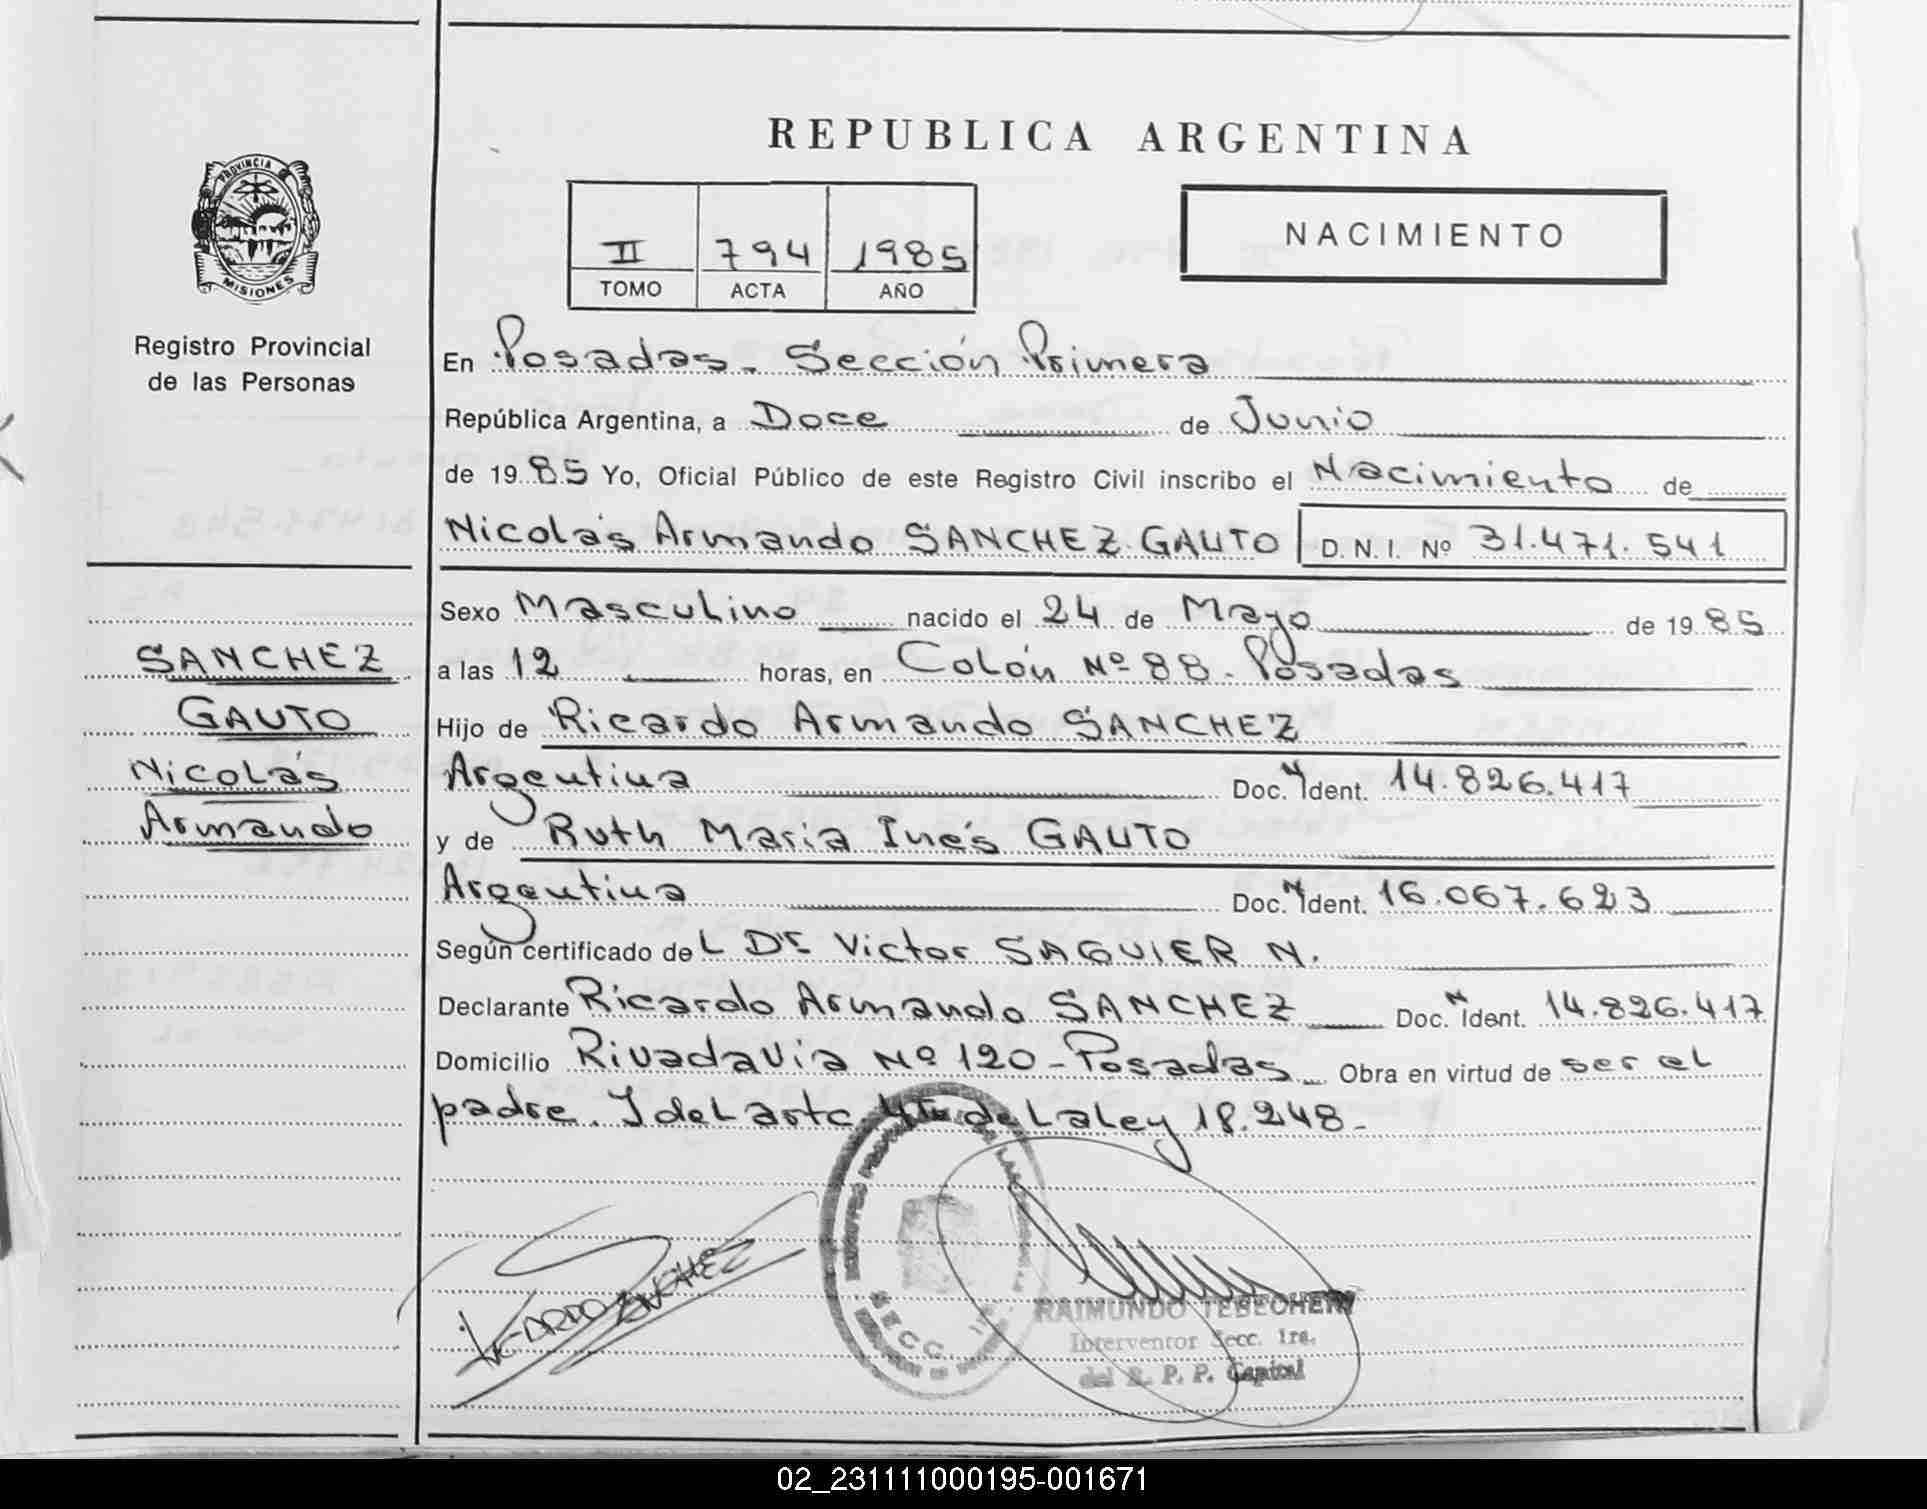 REPUBLICA ARGENTINA
PROVINCIA
MISIONES
Registro Provincial
de las Personas
II 794 1985
TOMO ACTA AÑO
NACIMIENTO
En Posadas. Sección Primera
República Argentina, a Doce de Junio
de 1985 Yo, Oficial Público de este Registro Civil inscribo el Nacimiento de
Nicolás Armando SANCHEZ GAUTO D.N.I. Nº 31.471.541
Sexo Masculino nacido el 24 de Mayo de 1985
a las 12 horas, en Colón Nº 88. Posadas
Hijo de Ricardo Armando SANCHEZ
Argentina Doc. Ident. 14.826.417
y de Ruth Maria Inés GAUTO
Argentina Doc. Ident. 16.067.623
Según certificado del Dr Victor SAGUIER N.
Declarante Ricardo Armando SANCHEZ Doc. Ident. 14.826.417
Domicilio Rivadavia Nº 120 - Posadas Obra en virtud de ser el
padre. Y del artc 4to de La Ley 18.248.-
SANCHEZ
GAUTO
Nicolás
Armando
SECC. 1ra
RAIMUNDO
Interventor Secc. 1ra.
del R. P. P. Capital
02_231111000195-001671